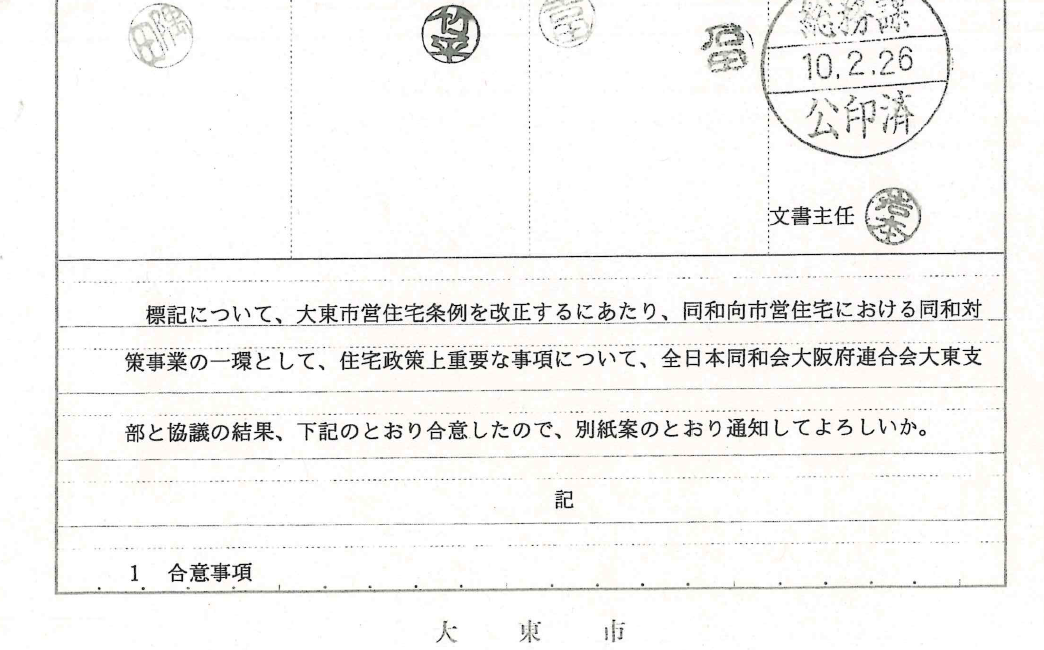 竹平
総務課
10.2.26
公印済
文書主任
岩本
標記について、大東市営住宅条例を改正するにあたり、同和向市営住宅における同和対
策事業の一環として、住宅政策上重要な事項について、全日本同和会大阪府連合会大東支
部と協議の結果、下記のとおり合意したので、別紙案のとおり通知してよろしいか。
記
1 合意事項
大東市